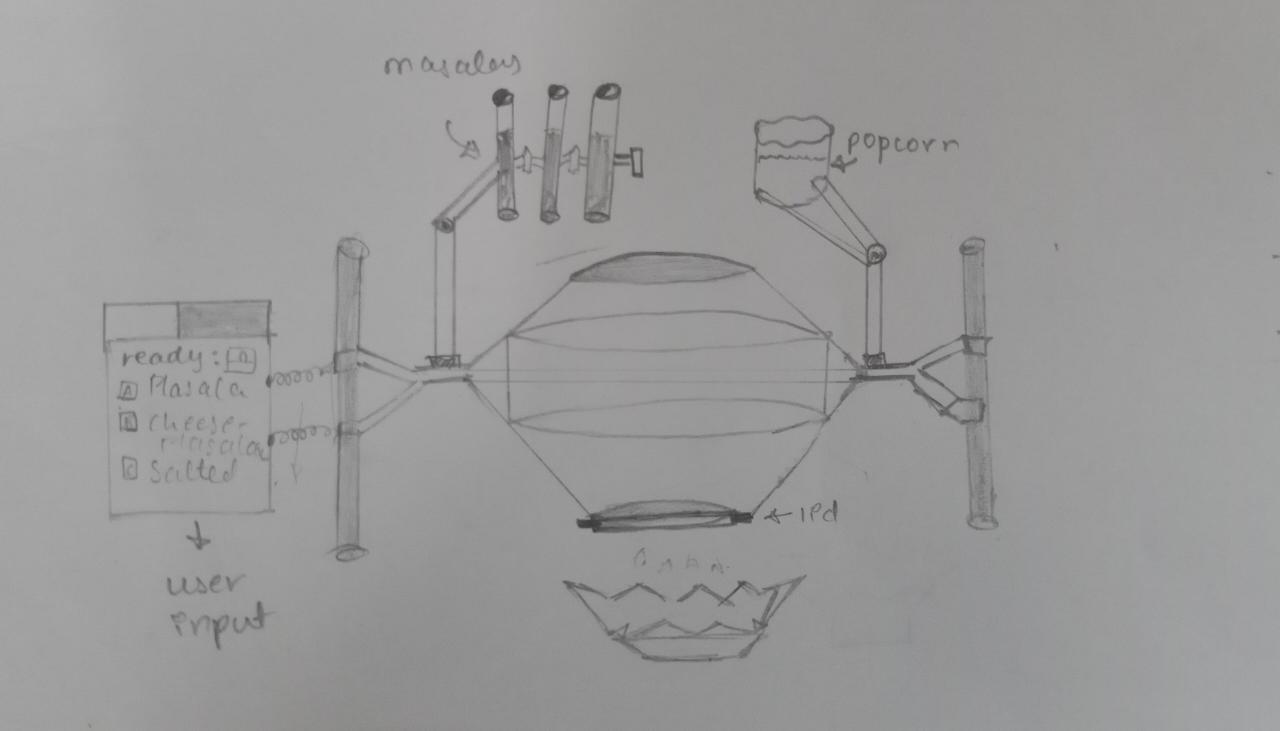 masalas
popcorn
ready:
A Masala
B Cheese-
Masala
C Salted
lid
user
input